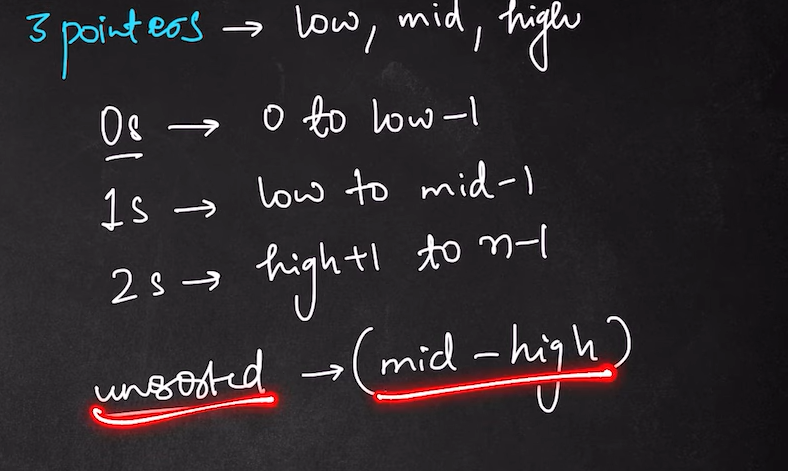 3 pointers → low, mid, high
0s → 0 to low-1
1s → low to mid-1
2s → high+1 to n-1
unsorted → (mid - high)